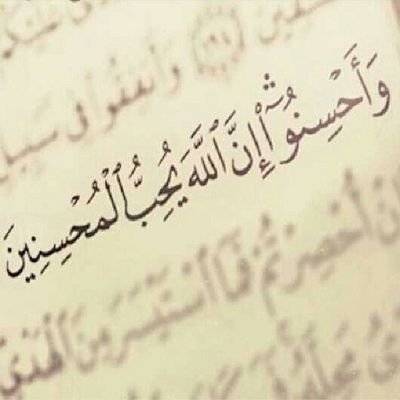 وَأَنفِقُوا۟ فِى سَبِيلِ
وَأَحْسِنُوٓا۟ ۛ إِنَّ ٱللَّهَ يُحِبُّ ٱلْمُحْسِنِينَ
أُحْصِرْتُمْ فَمَا ٱسْتَيْسَرَ مِنَ ٱلْهَدْىِ